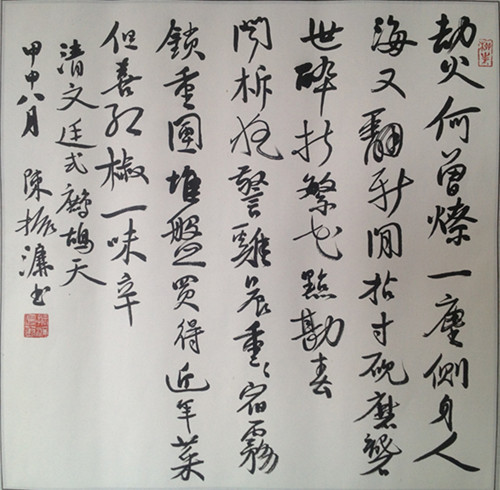 劫火何曾燎一塵側身人
海又翻新閒拈寸硯磨礱
世醉折繁花點勘春
聞柝夜警雞晨重重宿霧
鎖重圍堆盤買得迎年菜
但喜紅椒一味辛
清文廷式鷓鴣天
甲申八月 陳振濂書